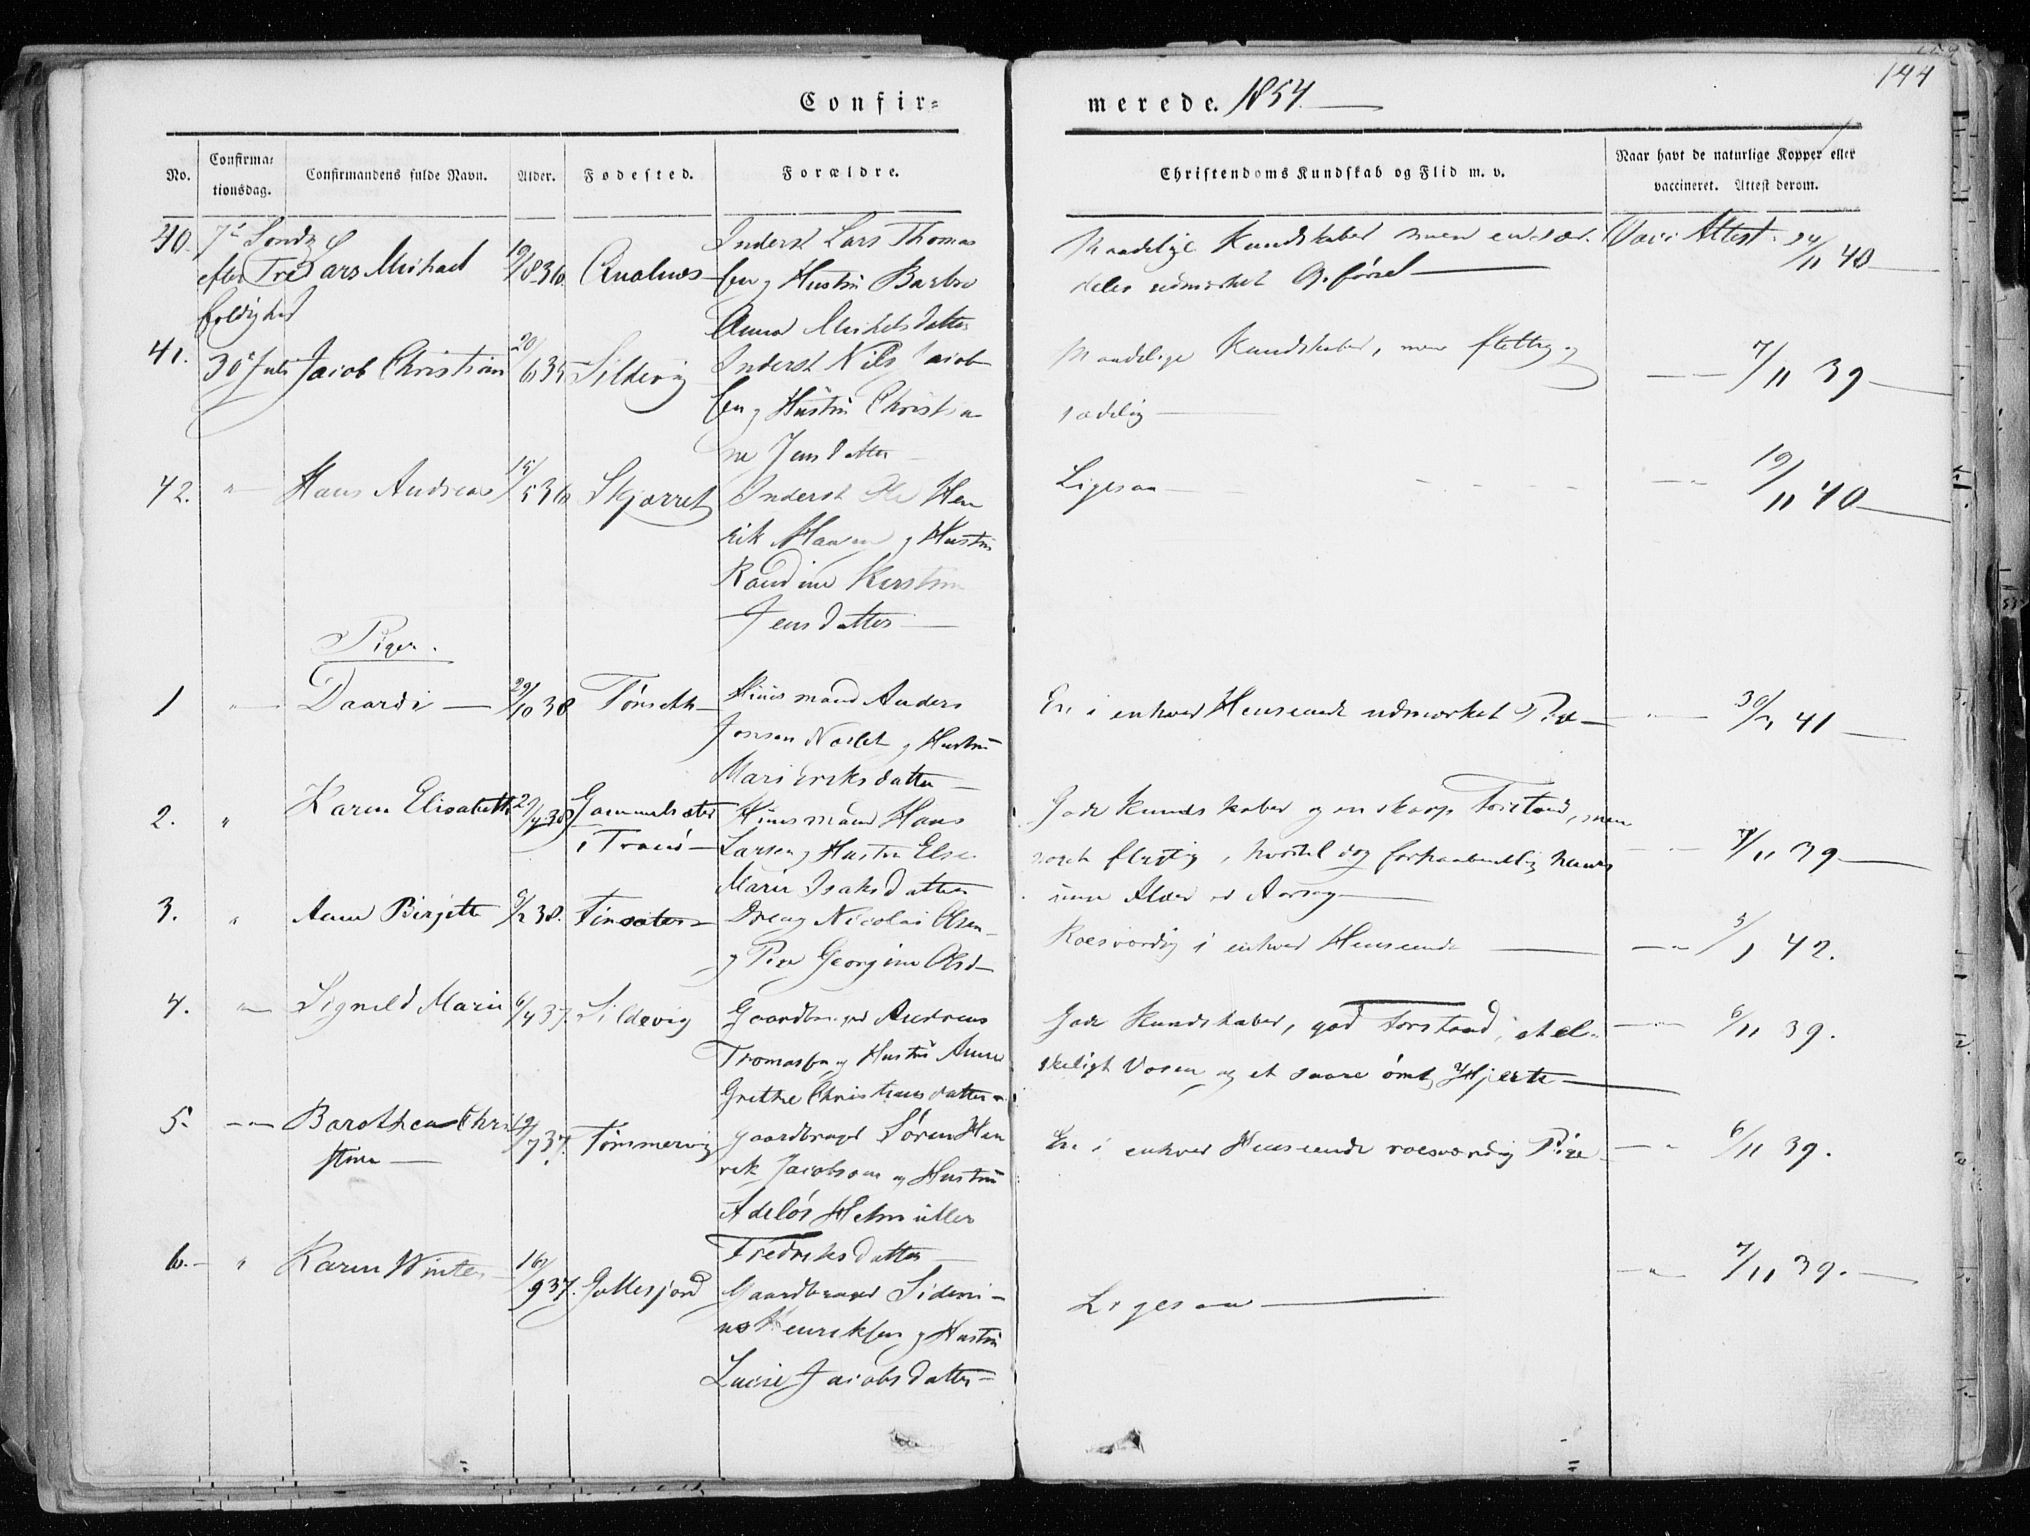 144
Confir-
merede. 1854
No.
Confirmationsdag.
Confirmandens fulde Navn.
Alder.
Fødested.
Forældre.
Christendoms Kundskab og Flid m. v.
Naar havt de naturlige Kopper eller
vaccineret. Attest derom.
40. 7de Sønd
efter Tre
foldighed
Lars Michael
10/8 36
Inderst Lars Thomas
sen og Hustru Barbro
Anna Mikkelsdatter
Maadelige Kundskaber men en sær-
deles udmærket Opførsel
Vacc. Attest 24/11 40
41. 30te Juli
Jacob Christian
20/6 39
Sildevig
Inderst Nils Jacob
sen og Hustru Christia
ne Jensdatter
Maadelige Kundskaber, men flittig og
sædelig
7/11 39
42. "
Hans Andreas
15/5 36
Skjærret
Inderst Ole Hen
rik Hansen og Hustru
Randine Kirstine
Jensdatter
Ligesaa
19/11 40
Piger.
1
Daardi
29/10 38
Tønseth
Huusmand Anders
Jonsen og Hustru
Mari Eriksdatter
Er i enhver Henseende udmærket Pige
30/7 41
2. "
Karen Elisabeth
Gammelsæter
i Tranø
Huusmand Hans
Larsen og Hustru Else
Marie Isaksdatter
Gode Kundskaber og en skarp Forstand, men
noget flygtig, hvortil dog forhaabentlig hendes
unge Alder er Aarsag
7/11 39
3. "
Anne Birgitte
5/2 38.
Finsæter
Dreng Nicolai Olsen
og Pige Georgine Olsd
Roesværdig i enhver Henseende
5/1 42.
4. "
Signeld Marie
6/4 37.
Sildevig
Gaardbruger Andreas
Thomassen og Hustru Anne
Grethe Christiansdatter
Gode Kundskaber, god Forstand, et el-
skeligt Væsen og et saare ømt Hjerte
6/11 39.
5. "
Barothea Chri
stine
/7 37.
Tømmervig
Gaardbruger Søren Hen
rik Jacobsen og Hustru
Adelös Helmüller
Fredriksdatter
Er i enhver Henseende roesværdig Pige
6/11 39.
6. "
Karen Winter
16/9 37.
Gottesjord
Gaardbruger Sideni-
us Henriksen og Hustru
Lucie Jacobsdatter
Ligesaa
7/11 39.